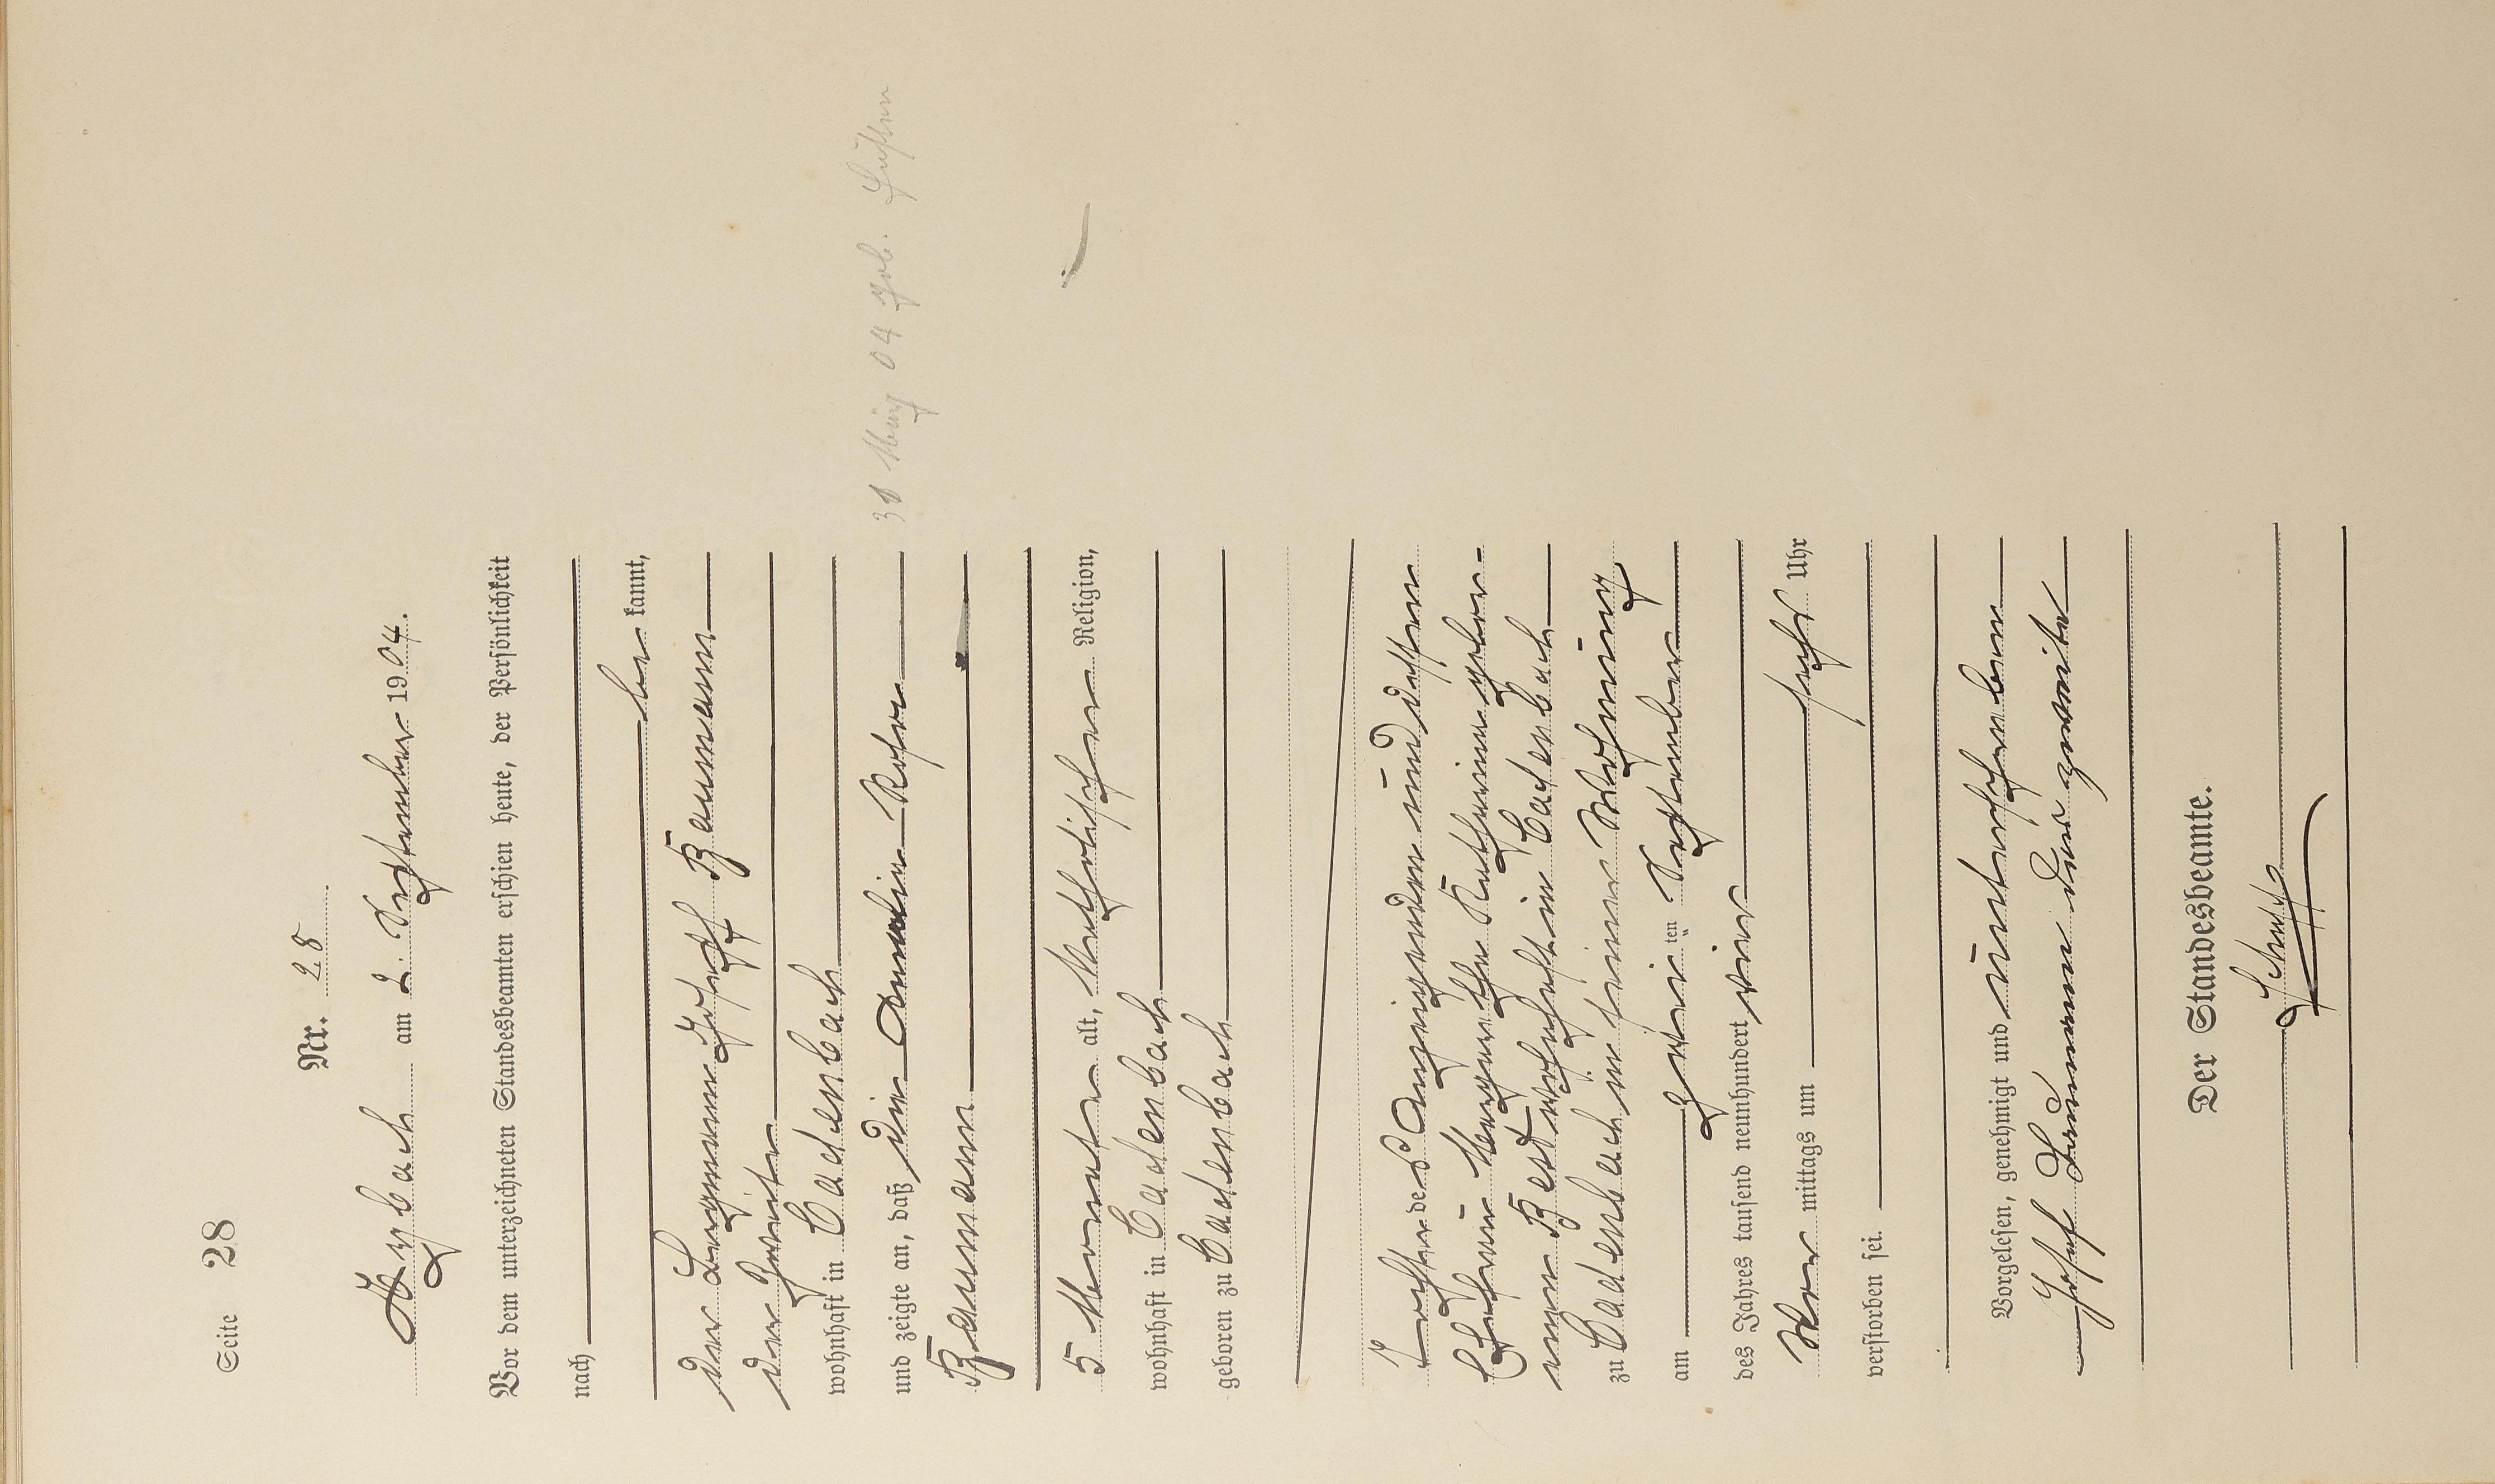 Seite 28
Nr. 28
am 2. September 1904.
Vor dem unterzeichneten Standesbeamten erschien heute, der Persönlichkeit
nach
be kannt,
der Bergmann Joseph Baumann
der Zweite
wohnhaft in Cadenbach
und zeigte an, daß die Rosa
Baumann
5 Monate alt, katholischer Religion,
wohnhaft in Cadenbach
geboren zu Cadenbach
Tochter des Anzeigenden und dessen
Ehefrau Margarethe Katharina gebor-
wohnhaft in Cadenbach
zu Cadenbach in seiner Wohnung
am zweiten September
des Jahres tausend neunhundert vier
Vor mittags um sechs Uhr
verstorben sei.
Vorgelesen, genehmigt und unterschrieben
Josef Baumann der zweite
Der Standesbeamte.
30 März 04 geb.